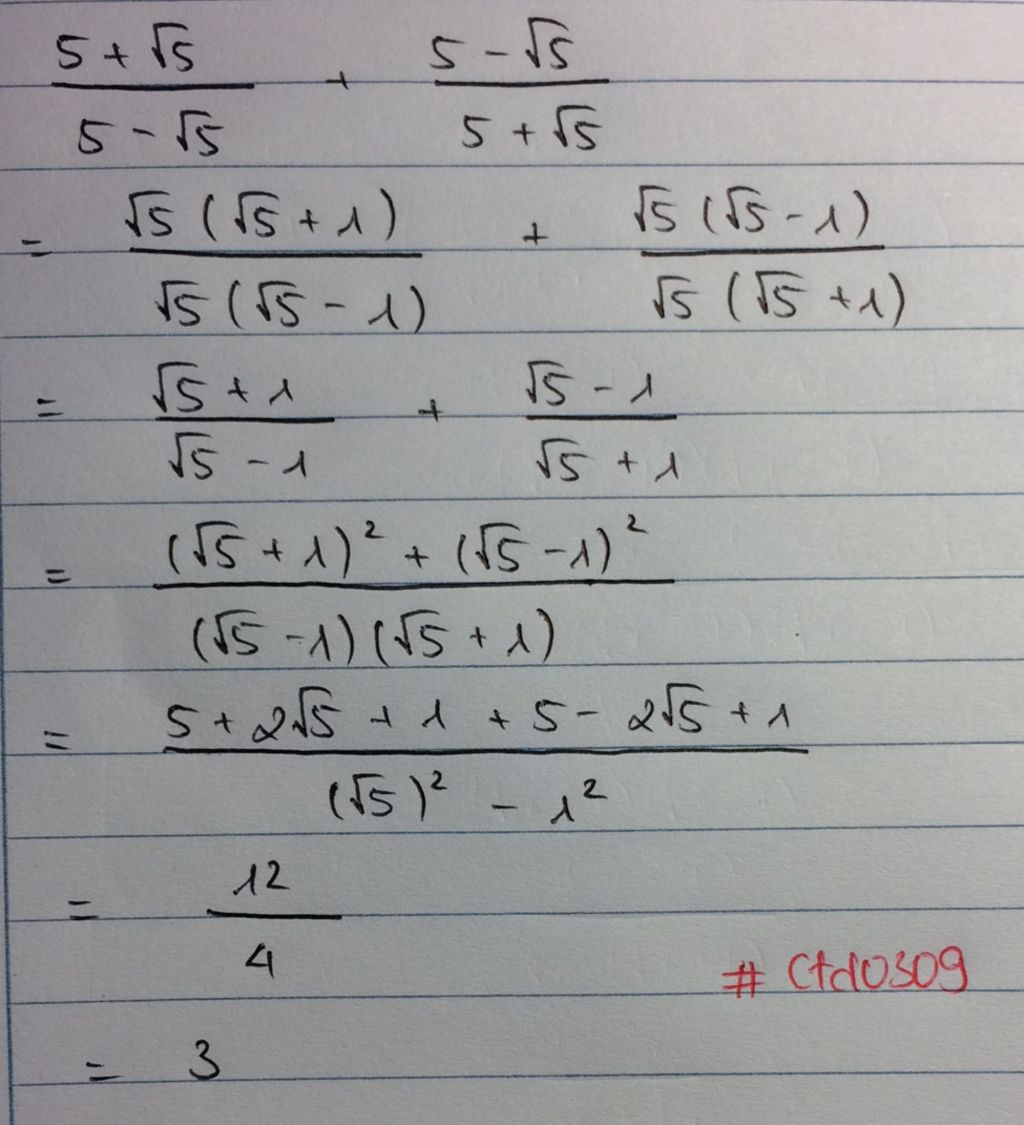 5 + √5 / 5 - √5 + 5 - √5 / 5 + √5
= √5 (√5 + 1) / √5 (√5 - 1) + √5 (√5 - 1) / √5 (√5 + 1)
= √5 + 1 / √5 - 1 + √5 - 1 / √5 + 1
= (√5 + 1)² + (√5 - 1)² / (√5 - 1) (√5 + 1)
= 5 + 2√5 + 1 + 5 - 2√5 + 1 / (√5)² - 1²
= 12 / 4
# Ctd0309
= 3